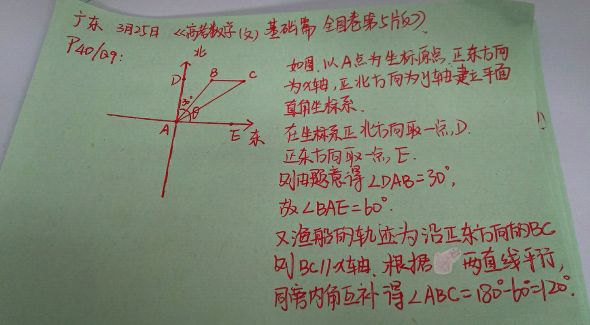 广东 3月25日 《高考数学(文)基础篇 全国卷第5版》
P40/Q9:
北
D
B
C
30°
θ
A
E
东
如图,以A点为坐标原点,正东方向
为x轴,正北方向为y轴建立平面
直角坐标系.
在坐标系正北方向取一点,D.
正东方向取一点,E.
则由题意得∠DAB=30°,
故∠BAE=60°.
又渔船的轨迹为沿正东方向的BC
则BC//x轴.根据 两直线平行,
同旁内角互补得∠ABC=180°-60°=120°.